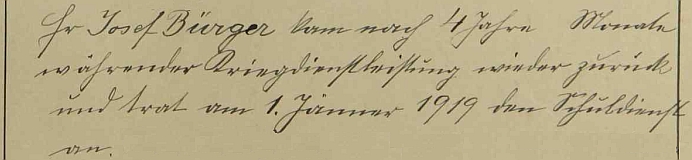 Hr Josef Bürger kam nach 4 Jahre Monate
währender Kriegdienstleistung wieder zurück
und trat am 1. Jänner 1919 den Schuldienst
an.